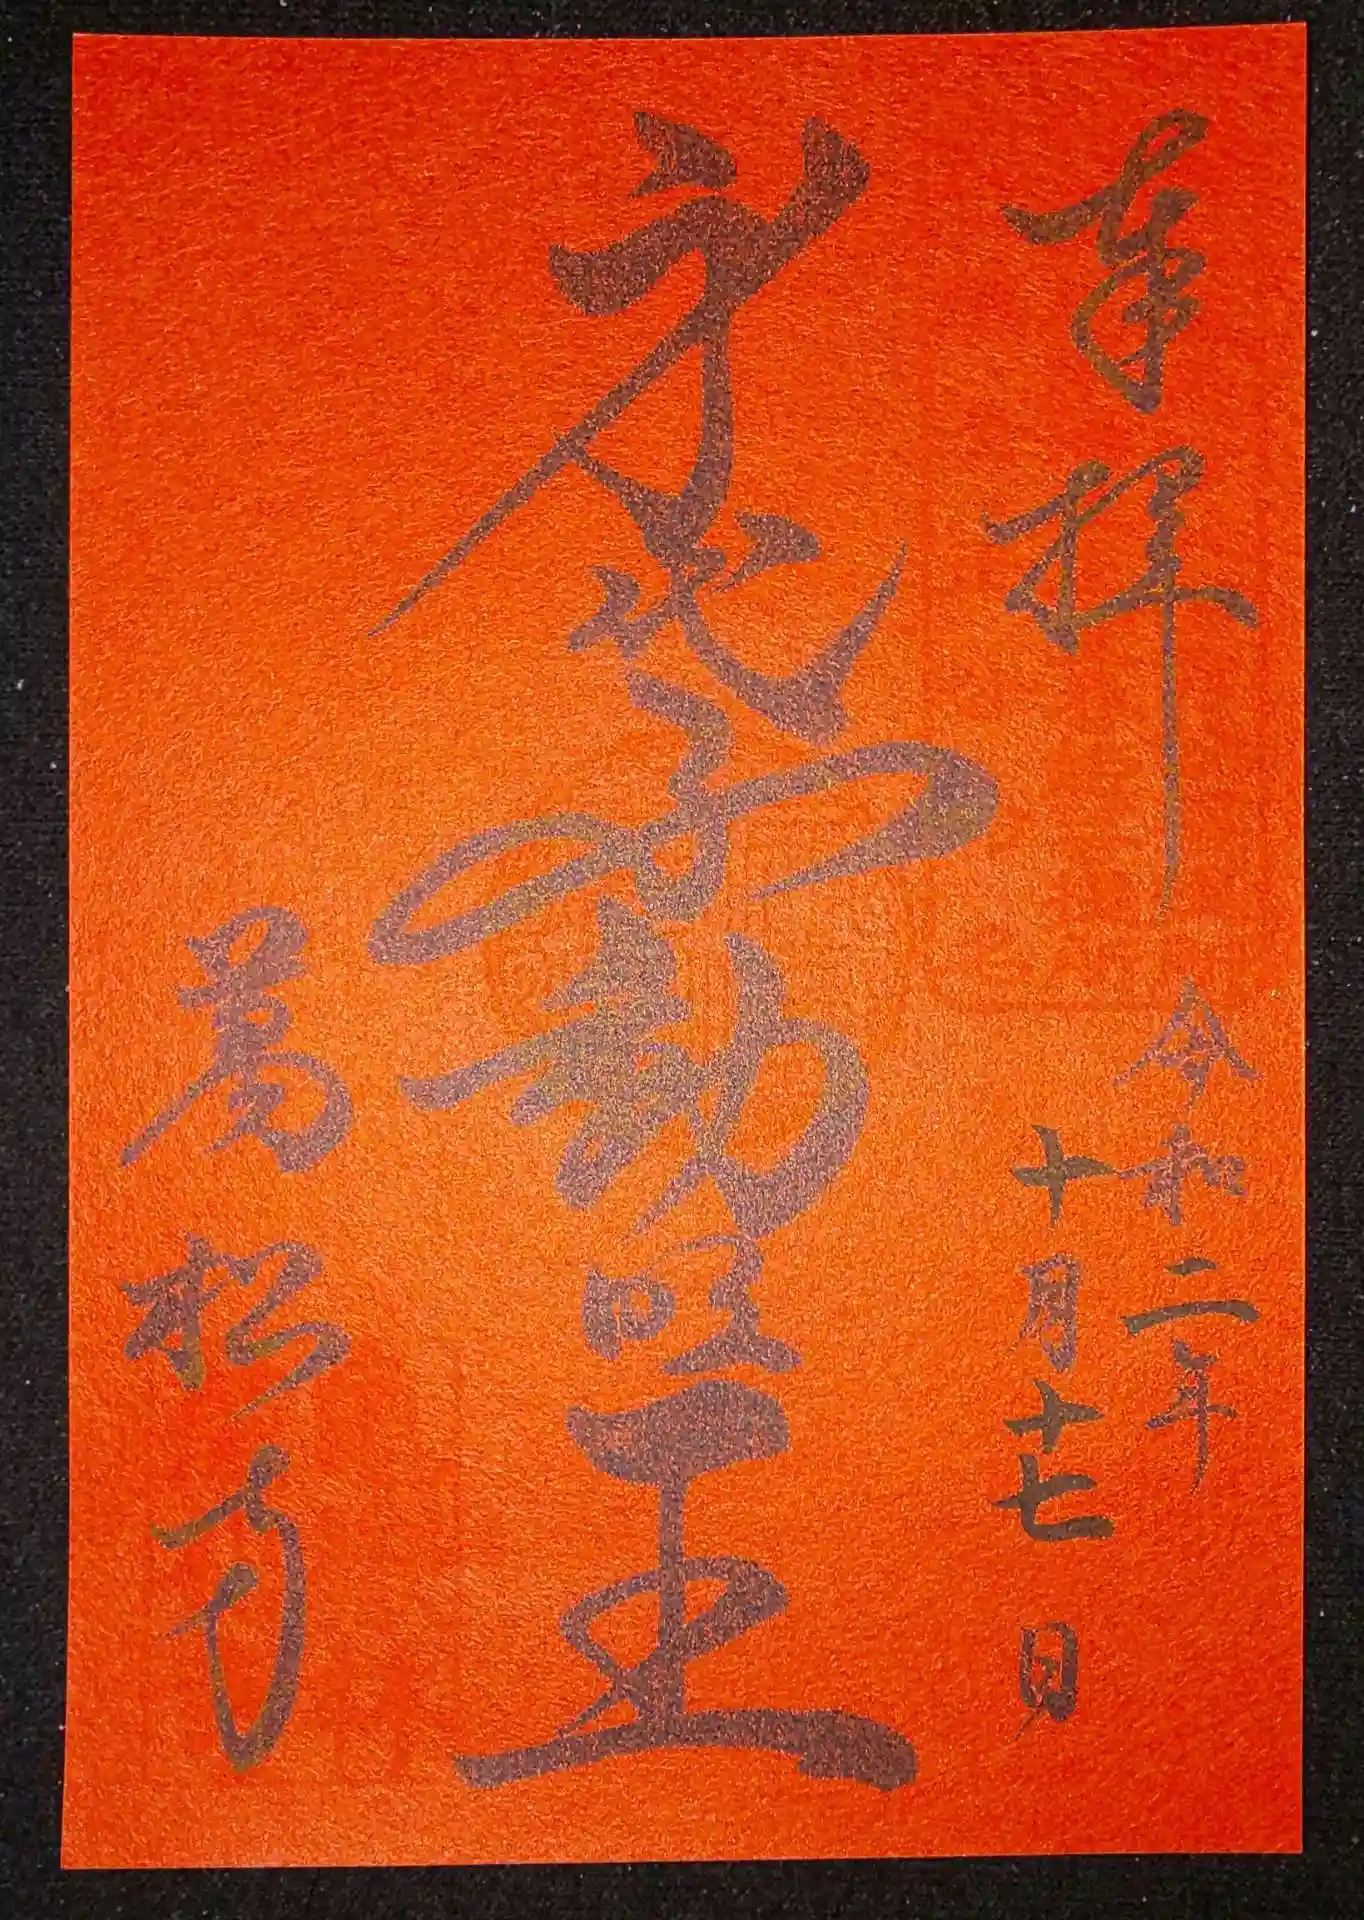 奉拝
令和二年
十月十七日
不動明王
萬松寺